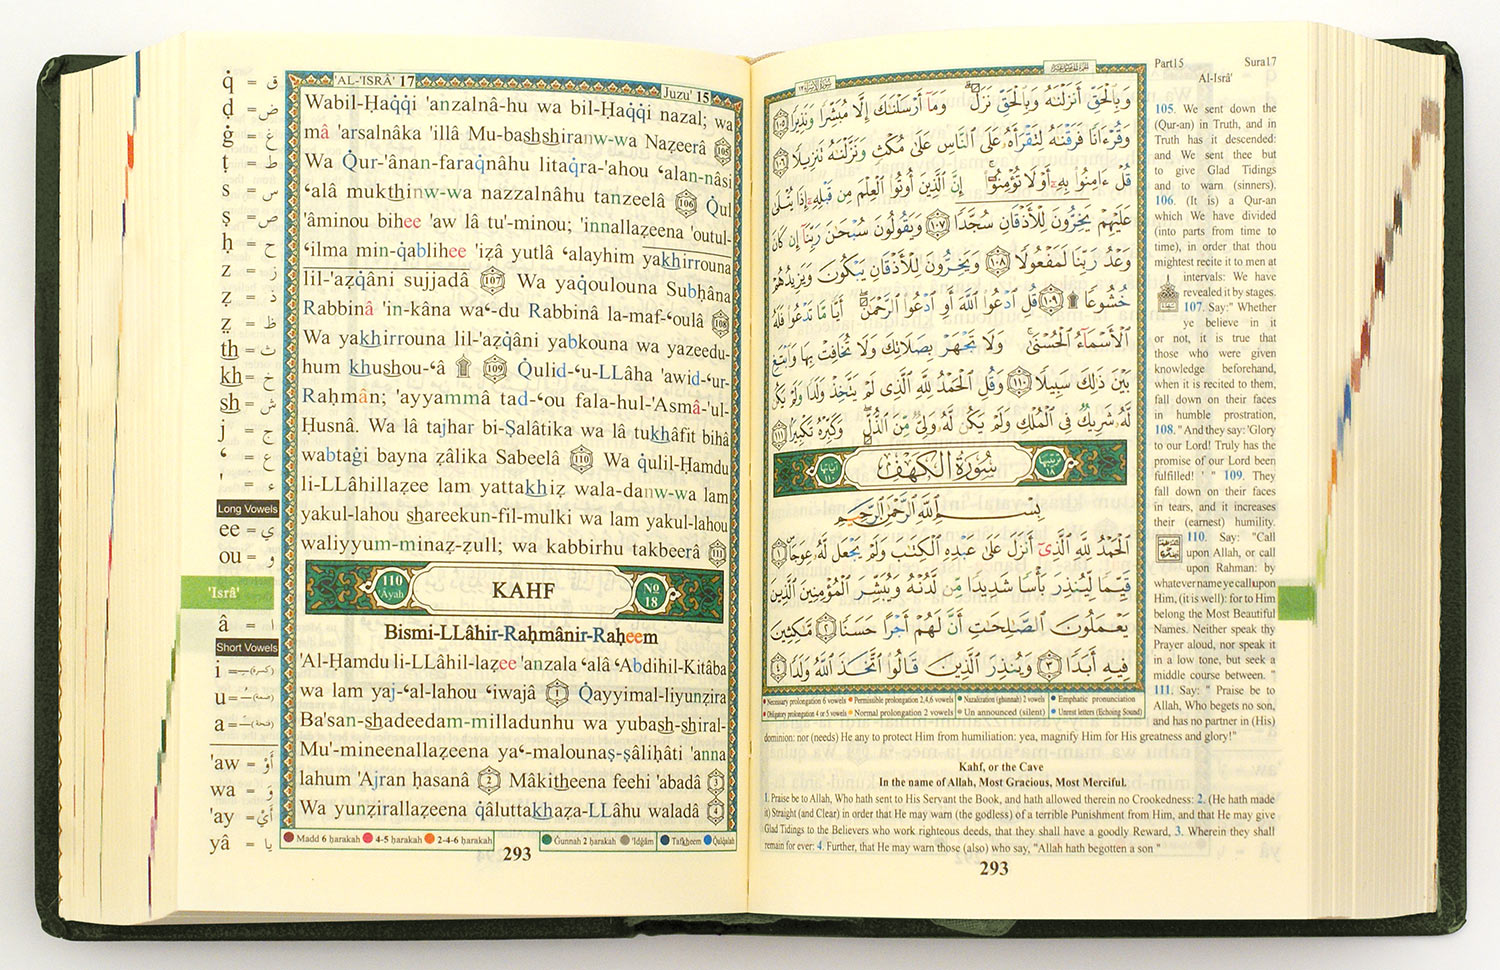 q̇ = ق
ḍ = ض
ġ = غ
ṭ = ط
s = س
ṣ = ص
ḥ = ح
z = ز
ẓ = ذ
ẓ = ظ
th = ث
kh = خ
sh = ش
j = ج
‘ = ع
' = ء
Long Vowels
ee = ي
ou = و
'Isrâ'
â = ا
Short Vowels
i = (كسرة)
u = (ضمة)
a = (فتحة)
'aw = أَوْ
wa = وَ
'ay = أَيْ
yâ = يا
'AL-'ISRÂ' 17
Juzu' 15
Wabil-Ḥaq̇q̇i 'anzalnâ-hu wa bil-Ḥaq̇q̇i nazal; wa
mâ 'arsalnâka 'illâ Mu-bashshiranw-wa Naẓeerâ 105
Wa Q̇ur-'ânan-faraq̇nâhu litaq̇ra-'ahou ‘alan-nâsi
‘alâ mukthinw-wa nazzalnâhu tanzeelâ 106 Q̇ul
'âminou bihee 'aw lâ tu'-minou; 'innallaẓeena 'outul-
‘ilma min-q̇ablihee 'iẓâ yutlâ ‘alayhim yakhirrouna
lil-'aẓq̇âni sujjadâ 107 Wa yaq̇oulouna Subḥâna
Rabbinâ 'in-kâna wa‘-du Rabbinâ la-maf-‘oulâ 108
Wa yakhirrouna lil-'aẓq̇âni yabkouna wa yazeedu-
hum khushou-‘â 109 Q̇ulid-‘u-LLâha 'awid-‘ur-
Raḥmân; 'ayyammâ tad-‘ou fala-hul-'Asmâ-'ul-
Ḥusnâ. Wa lâ tajhar bi-Ṣalâtika wa lâ tukhâfit bihâ
wabtaġi bayna ẓâlika Sabeelâ 110 Wa q̇ulil-Ḥamdu
li-LLâhillaẓee lam yattakhiẓ wala-danw-wa lam
yakul-lahou shareekun-fil-mulki wa lam yakul-lahou
waliyyum-minaẓ-ẓull; wa kabbirhu takbeerâ 111
110 'Âyah KAHF No 18
Bismi-LLâhir-Raḥmânir-Raḥeem
'Al-Ḥamdu li-LLâhil-laẓee 'anzala ‘alâ ‘Abdihil-Kitâba
wa lam yaj-‘al-lahou ‘iwajâ 1 Q̇ayyimal-liyunẓira
Ba'san-shadeedam-milladunhu wa yubash-shiral-
Mu'-mineenallaẓeena ya‘-malounaṣ-ṣâliḥâti 'anna
lahum 'Ajran ḥasanâ 2 Mâkitheena feehi 'abadâ 3
Wa yunẓirallaẓeena q̇âluttakhaẓa-LLâhu waladâ 4
Madd 6 ḥarakah 4-5 ḥarakah 2-4-6 ḥarakah Ġunnah 2 ḥarakah 'Idġâm Tafkheem Qalqalah
293
وَبِالْحَقِّ أَنزَلْنَاهُ وَبِالْحَقِّ نَزَلَ ۗ وَمَا أَرْسَلْنَاكَ إِلَّا مُبَشِّرًا وَنَذِيرًا ١٠٥
وَقُرْءَانًا فَرَقْنَاهُ لِتَقْرَأَهُ عَلَى النَّاسِ عَلَىٰ مُكْثٍ وَنَزَّلْنَاهُ تَنزِيلًا ١٠٦
قُلْ ءَامِنُوا بِهِ أَوْ لَا تُؤْمِنُوا ۚ إِنَّ الَّذِينَ أُوتُوا الْعِلْمَ مِن قَبْلِهِ إِذَا يُتْلَىٰ
عَلَيْهِمْ يَخِرُّونَ لِلْأَذْقَانِ سُجَّدًا ١٠٧ وَيَقُولُونَ سُبْحَانَ رَبِّنَا إِن كَانَ
وَعْدُ رَبِّنَا لَمَفْعُولًا ١٠٨ وَيَخِرُّونَ لِلْأَذْقَانِ يَبْكُونَ وَيَزِيدُهُمْ
خُشُوعًا ١٠٩ قُلِ ادْعُوا اللَّهَ أَوِ ادْعُوا الرَّحْمَٰنَ ۖ أَيًّا مَّا تَدْعُوا فَلَهُ
الْأَسْمَاءُ الْحُسْنَىٰ ۚ وَلَا تَجْهَرْ بِصَلَاتِكَ وَلَا تُخَافِتْ بِهَا وَابْتَغِ
بَيْنَ ذَٰلِكَ سَبِيلًا ١١٠ وَقُلِ الْحَمْدُ لِلَّهِ الَّذِي لَمْ يَتَّخِذْ وَلَدًا وَلَمْ يَكُن
لَّهُ شَرِيكٌ فِي الْمُلْكِ وَلَمْ يَكُن لَّهُ وَلِيٌّ مِّنَ الذُّلِّ ۖ وَكَبِّرْهُ تَكْبِيرًا ١١١
ترتيبها ١٨ سُورَةُ الْكَهْفِ آياتها ١١٠
بِسْمِ اللَّهِ الرَّحْمَٰنِ الرَّحِيمِ
الْحَمْدُ لِلَّهِ الَّذِي أَنزَلَ عَلَىٰ عَبْدِهِ الْكِتَابَ وَلَمْ يَجْعَل لَّهُ عِوَجًا ١
قَيِّمًا لِّيُنذِرَ بَأْسًا شَدِيدًا مِّن لَّدُنْهُ وَيُبَشِّرَ الْمُؤْمِنِينَ الَّذِينَ
يَعْمَلُونَ الصَّالِحَاتِ أَنَّ لَهُمْ أَجْرًا حَسَنًا ٢ مَّاكِثِينَ
فِيهِ أَبَدًا ٣ وَيُنذِرَ الَّذِينَ قَالُوا اتَّخَذَ اللَّهُ وَلَدًا ٤
Necessary prolongation 6 vowels Permissible prolongation 2,4,6 vowels Nazalization (ghunnah) 2 vowels Emphatic pronunciation
Obligatory prolongation 4 or 5 vowels Normal prolongation 2 vowels Un announced (silent) Unrest letters (Echoing Sound)
Part15 Sura17
Al-Isrâ'
105. We sent down the
(Qur-an) in Truth, and in
Truth has it descended:
and We sent thee but
to give Glad Tidings
and to warn (sinners).
106. (It is) a Qur-an
which We have divided
(into parts from time to
time), in order that thou
mightest recite it to men at
intervals: We have
revealed it by stages.
107. Say:" Whether
ye believe in it
or not, it is true that
those who were given
knowledge beforehand,
when it is recited to them,
fall down on their faces
in humble prostration,
108. "And they say: 'Glory
to our Lord! Truly has the
promise of our Lord been
fulfilled! ' " 109. They
fall down on their faces
in tears, and it increases
their (earnest) humility.
110. Say: "Call
upon Allah, or call
upon Rahman: by
whatever name ye call upon
Him, (it is well): for to Him
belong the Most Beautiful
Names. Neither speak thy
Prayer aloud, nor speak it
in a low tone, but seek a
middle course between. "
111. Say: " Praise be to
Allah, Who begets no son,
and has no partner in (His)
dominion: nor (needs) He any to protect Him from humiliation: yea, magnify Him for His greatness and glory!"
Kahf, or the Cave
In the name of Allah, Most Gracious, Most Merciful.
1. Praise be to Allah, Who hath sent to His Servant the Book, and hath allowed therein no Crookedness: 2. (He hath made
it) Straight (and Clear) in order that He may warn (the godless) of a terrible Punishment from Him, and that He may give
Glad Tidings to the Believers who work righteous deeds, that they shall have a goodly Reward, 3. Wherein they shall
remain for ever: 4. Further, that He may warn those (also) who say, "Allah hath begotten a son "
293